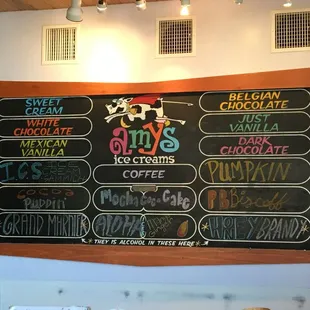 SWEET
CREAM
WHITE
CHOCOLATE
MEXICAN
VANILLA
I.C.S
COCO
PUDDIN'
GRAND MARNIER
amy's
ice creams
COFFEE
Mocha Coca Cake
ALOHA
BELGIAN
CHOCOLATE
JUST
VANILLA
DARK
CHOCOLATE
PUMPKIN
PB Biscoff
BRANDY
*THEY IS ALCOHOL IN THESE HERE*